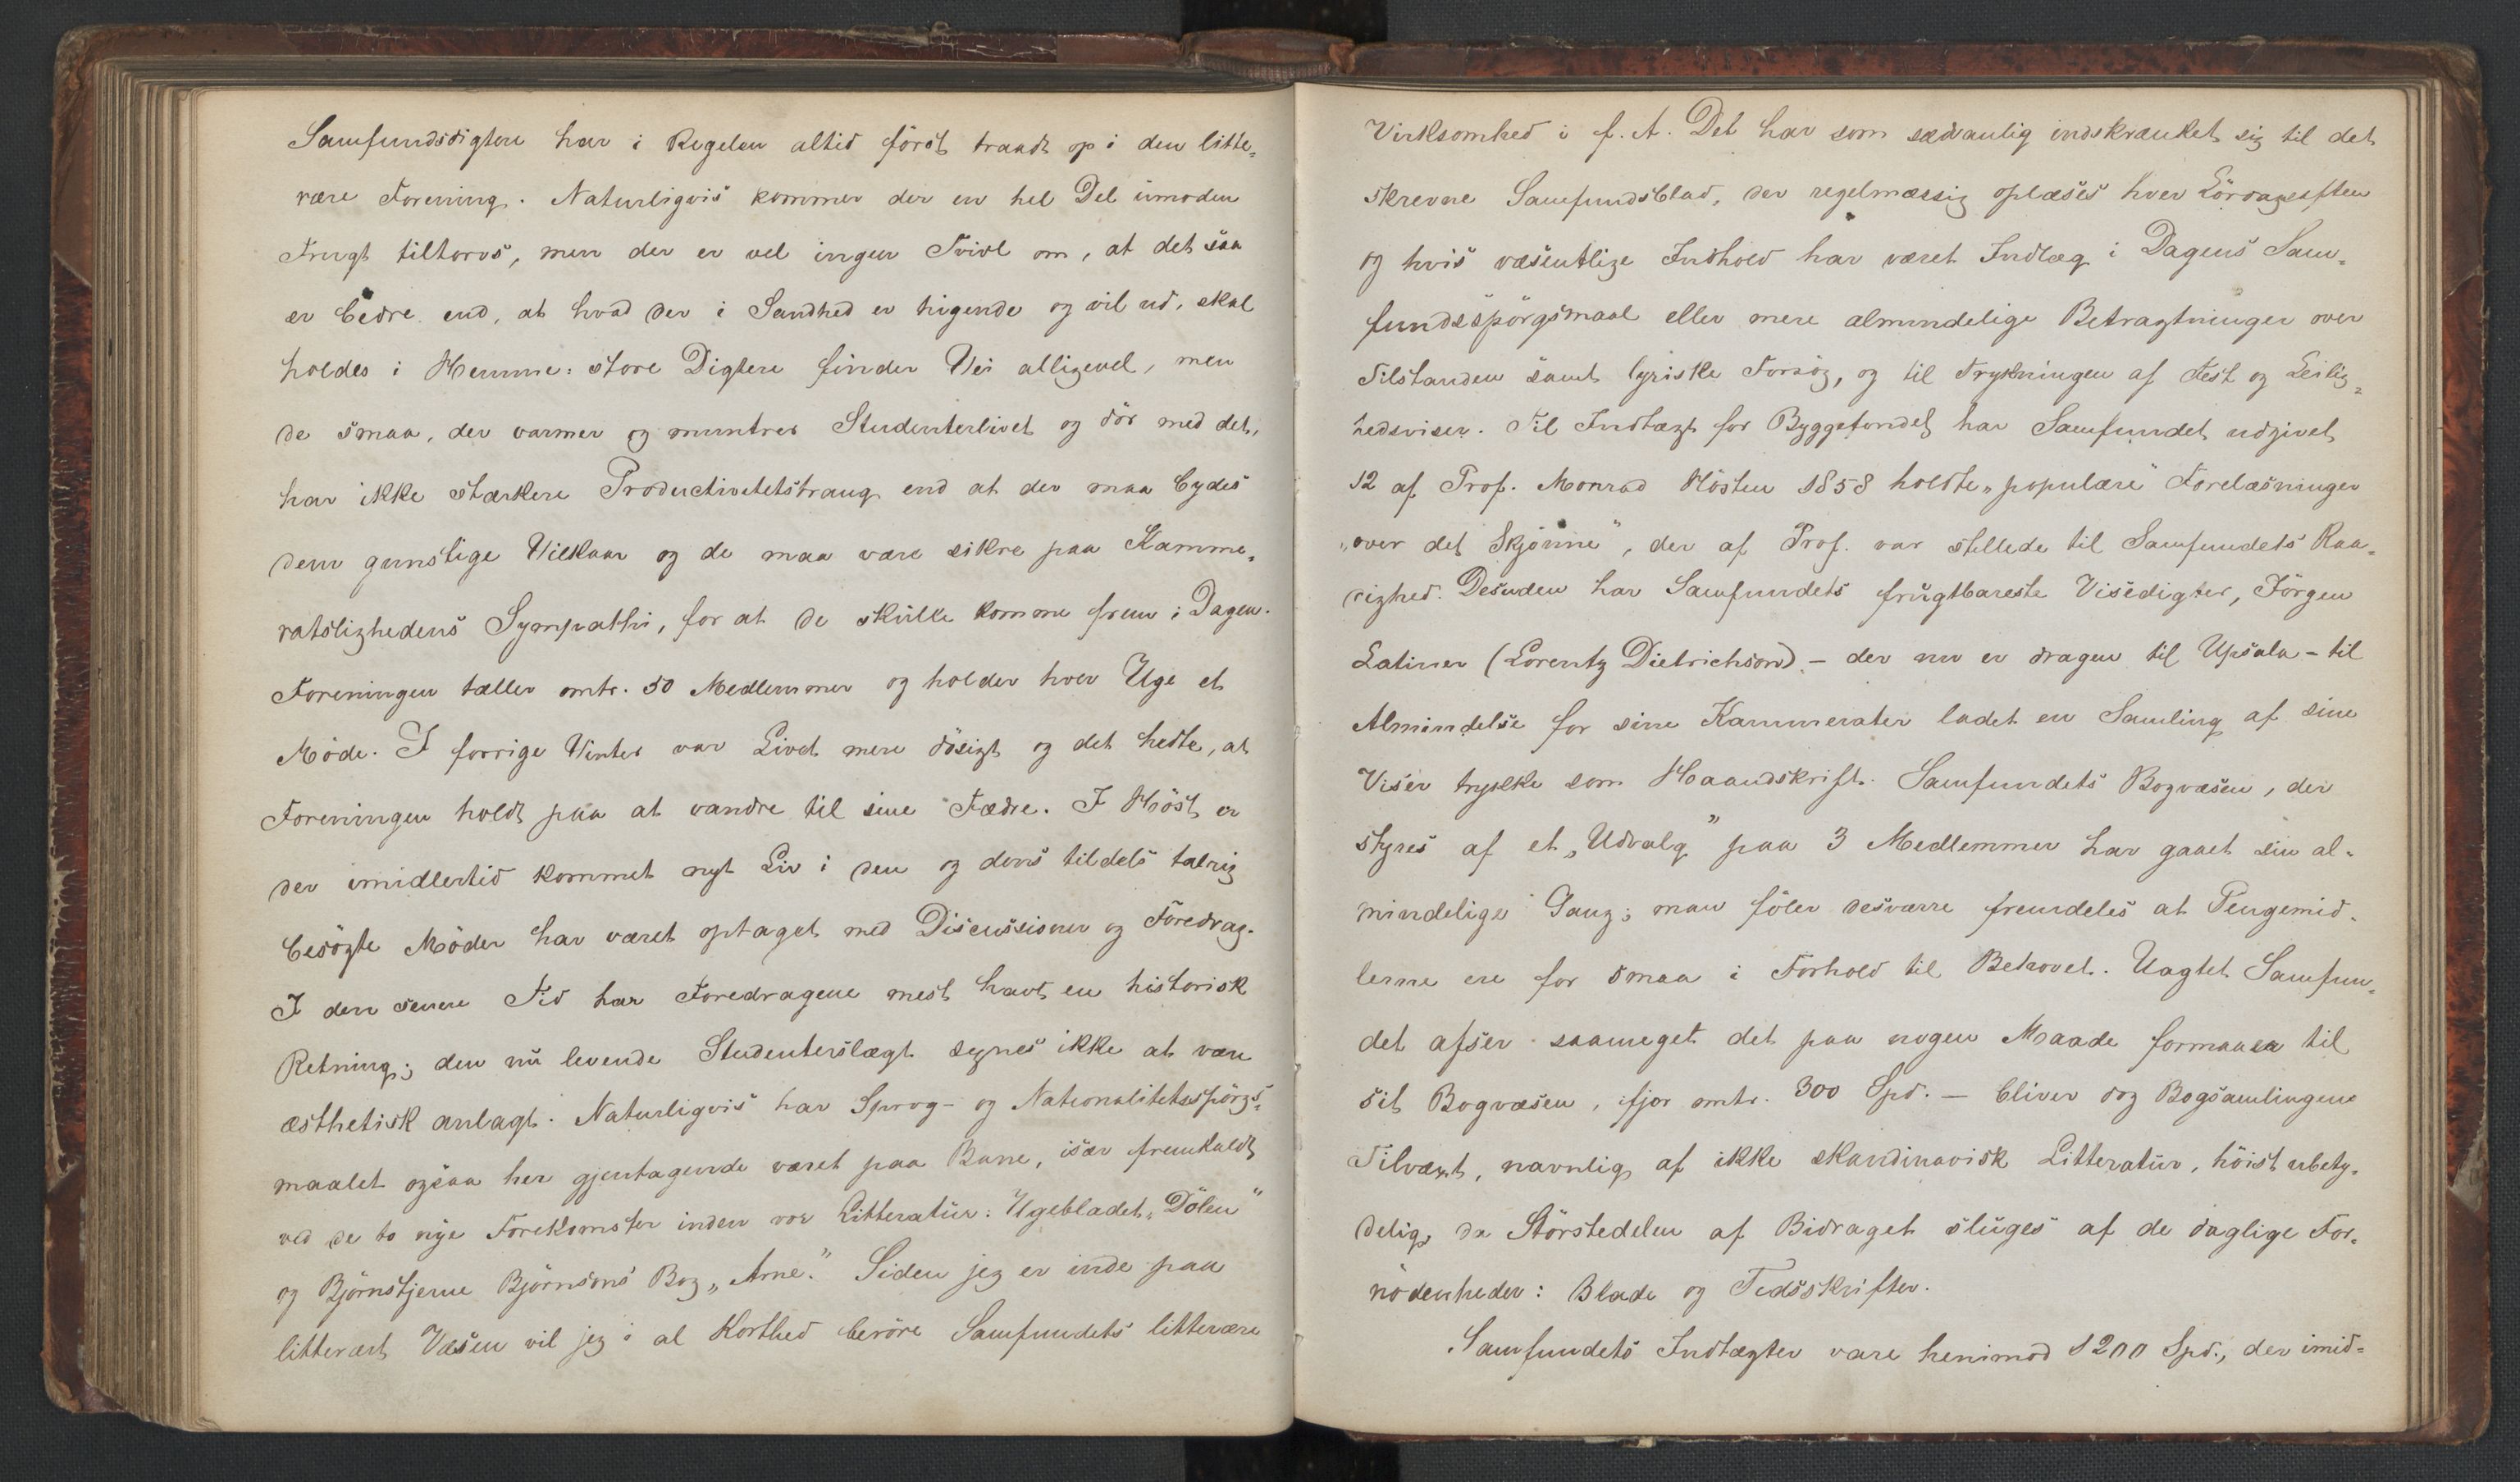 Samfundsdigtere har i Regelen altid först traadt op i den litte-
rære Forening. Naturligvis kommer der en hel Del umoden
Frugt tiltorvs, men der er vel ingen Tvivl om, at det saa
er bedre end, at hvad der i Sandhed er higende og vil ud, skal
holdes i Hemme: store Digtere finder Vei alligevel, men
de smaa, der varmer og muntrer Studenterlivet og dör med det,
har ikke stærkere Productivitetstrang end at der maa bydes
dem gunstige Vilkaar og de maa være sikre paa Kamme-
ratslighedens Sympathi, for at de skulle komme frem i Dagen.
Foreningen tæller omtr. 50 Medlemmer og holder hver Uge et
Möde. I forrige Vinter var Livet mere dösigt og det hedte, at
Foreningen holdt paa at vandre til sine Fædre. I Höst er
der imidlertid kommet nyt Liv i den og dens tildels talrig
besögte Möder har været optaget med Discussioner og Foredrag.
I den senere Tid har Foredragene mest havt en historisk
Retning; den nu levende Studenterslægt synes ikke at være
æsthetisk anlagt. Naturligvis har Sprog- og Nationalitetsspörgs-
maalet ogsaa her gjentagende været paa Bane, især fremkaldt
ved de to nye Forekomster inden vor Litteratur: Ugebladet „Dölen"
og Björnstjerne Björnsons Bog „Arne." Siden jeg er inde paa
litterært Væsen vil jeg i al Korthed beröre Samfundets litterære
Virksomhed i f. A. Det har som sædvanlig indskrænket sig til det
skrevne Samfundsblad, der regelmæssig oplæses hver Lördagsaften
og hvis væsentlige Indhold har været Indlæg i Dagens Sam-
fundsspörgsmaal eller mere almindelige Betragtninger over
Tilstanden samt lyriske Forsög, og til Trykningen af Fest og Leilig-
hedsviser. Til Indtægt for Byggefondet har Samfundet udgivet
12 af Prof. Monrad Hösten 1858 holdte „populære Forelæsninger
„over det Skjönne", der af Prof. var stillede til Samfundets Raa-
dighed. Desuden har Samfundets frugtbareste Visedigter, Jörgen
Latiner (Lorentz Dietrichson) - der nu er dragen til Upsala - til
Almindelse for sine Kammerater ladet en Samling af sine
Viser trykke som Haandskrift. Samfundets Bogvæsen, der
styres af et „Udvalg" paa 3 Medlemmer har gaaet sin al-
mindelige Gang; man föler desværre fremdeles at Pengemid-
lerne ere for smaa i Forhold til Behovet. Uagtet Samfun-
det afser saameget det paa nogen Maade formaaer til
sit Bogvæsen, ifjor omtr. 300 Spd. — bliver dog Bogsamlingens
Tilvæxt, navnlig af ikke skandinavisk Litteratur, höist ubety-
delig, da Störstedelen af Bidraget sluges af de daglige For-
nödenheder: Blade og Tidsskrifter.
Samfundets Indtægter vare henimod 1200 Spd., der imid-